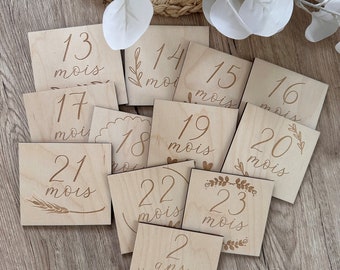 13
mois
14
mois
15
mois
16
mois
17
mois
18
mois
19
mois
20
mois
21
mois
22
mois
23
mois
2
ans